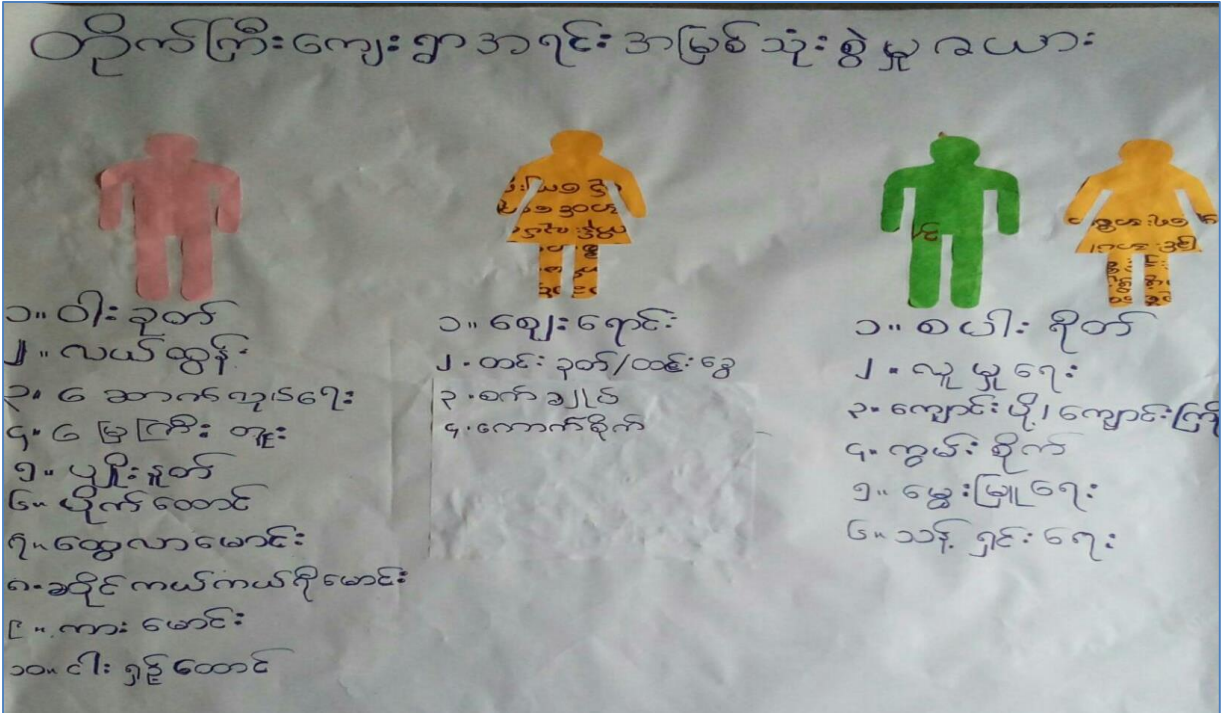 တိုက်ကြီးကျေးရွာအရင်းအမြစ်သုံးစွဲမှုဇယား
၁။ ဝါးခုတ်
၂။ လယ်ထွန်
၃။ ဆောက်လုပ်ရေး
၄။ မြေကြီးတူး
၅။ ပျိုးနှုတ်
၆။ ပိုက်ထောင်
၇။ ထွေလာမောင်း
၈။ ဆိုင်ကယ်ကယ်ရီမောင်း
၉။ ကားမောင်း
၁၀။ ငါးရှဉ့်ထောင်
၁။ ဈေးရောင်း
၂။ ထင်းခုတ်/ထင်းခွေ
၃။ စက်ချုပ်
၄။ ကောက်စိုက်
၁။ စပါးရိတ်
၂။ လူမှုရေး
၃။ ကျောင်းပို့/ကျောင်းကြို
၄။ ကွမ်းစိုက်
၅။ မွေးမြူရေး
၆။ သန့်ရှင်းရေး